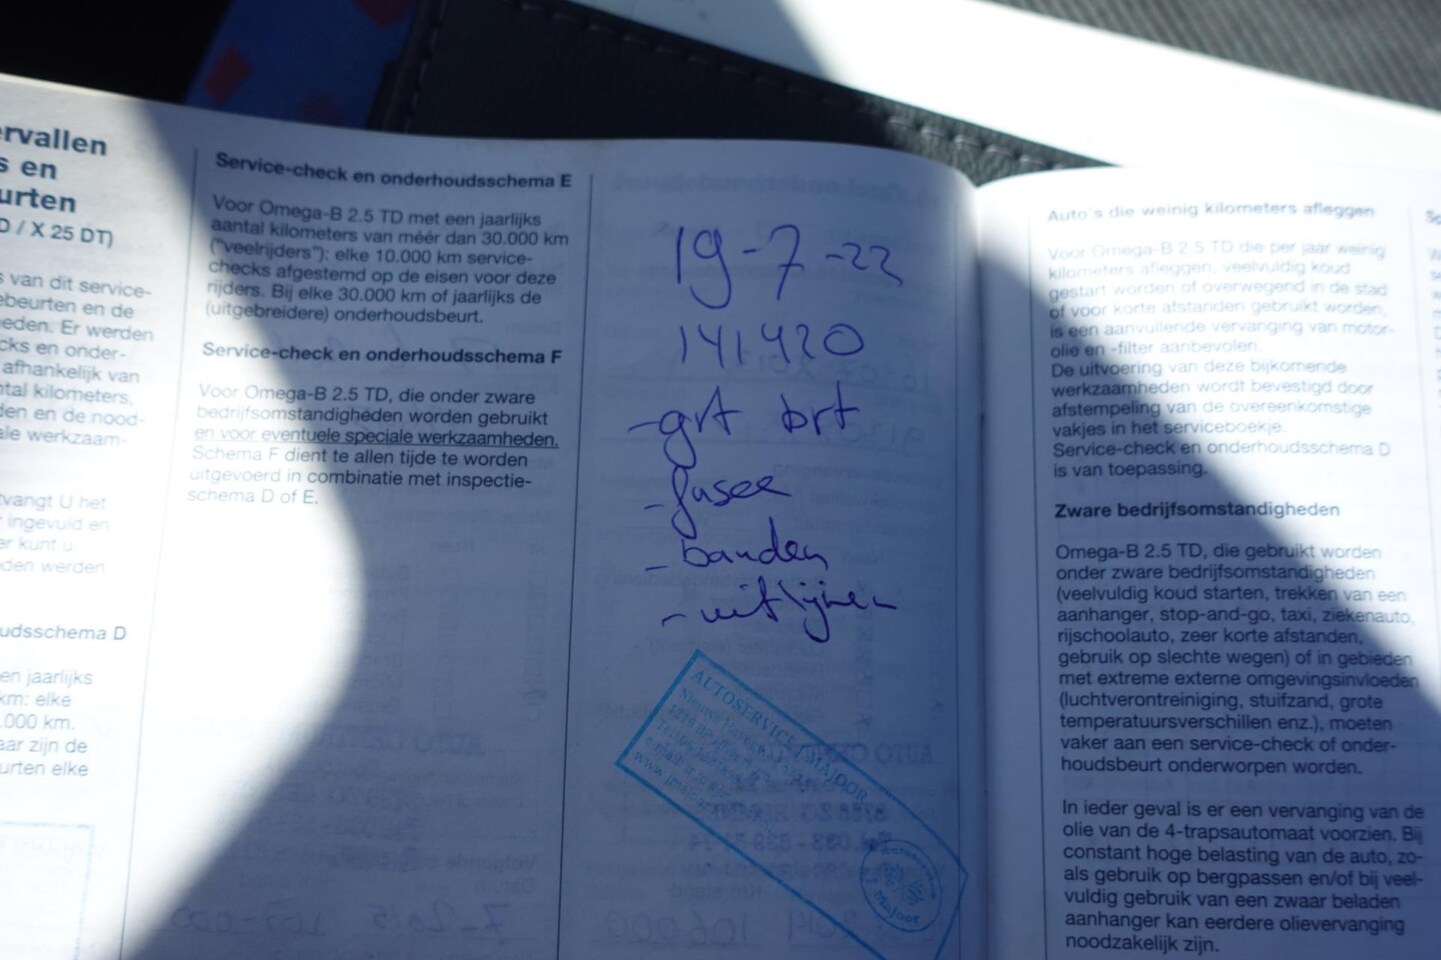 ervallen
s en
urten
D / X 25 DT)
s van dit service-
ebeurten en de
eden. Er werden
cks en onder-
afhankelijk van
ntal kilometers,
den en de nood-
ale werkzaam-
tvangt U het
ingevuld en
er kunt u
den werden
udsschema D
en jaarlijks
km: elke
.000 km.
aar zijn de
urten elke
Service-check en onderhoudsschema E
Voor Omega-B 2.5 TD met een jaarlijks
aantal kilometers van méér dan 30.000 km
("veelrijders"): elke 10.000 km service-
checks afgestemd op de eisen voor deze
rijders. Bij elke 30.000 km of jaarlijks de
(uitgebreidere) onderhoudsbeurt.
Service-check en onderhoudsschema F
Voor Omega-B 2.5 TD, die onder zware
bedrijfsomstandigheden worden gebruikt
en voor eventuele speciale werkzaamheden.
Schema F dient te allen tijde te worden
uitgevoerd in combinatie met inspectie-
schema D of E.
19-7-22
141420
- grt brt
- fusee
- banden
- uitlijnen
AUTOSERVICE MAJOOR
Auto's die weinig kilometers afleggen
Voor Omega-B 2.5 TD die per jaar weinig
kilometers afleggen, veelvuldig koud
gestart worden of overwegend in de stad
of voor korte afstanden gebruikt worden,
is een aanvullende vervanging van motor-
olie en -filter aanbevolen.
De uitvoering van deze bijkomende
werkzaamheden wordt bevestigd door
afstempeling van de overeenkomstige
vakjes in het serviceboekje.
Service-check en onderhoudsschema D
is van toepassing.
Zware bedrijfsomstandigheden
Omega-B 2.5 TD, die gebruikt worden
onder zware bedrijfsomstandigheden
(veelvuldig koud starten, trekken van een
aanhanger, stop-and-go, taxi, ziekenauto,
rijschoolauto, zeer korte afstanden,
gebruik op slechte wegen) of in gebieden
met extreme externe omgevingsinvloeden
(luchtverontreiniging, stuifzand, grote
temperatuursverschillen enz.), moeten
vaker aan een service-check of onder-
houdsbeurt onderworpen worden.
In ieder geval is er een vervanging van de
olie van de 4-trapsautomaat voorzien. Bij
constant hoge belasting van de auto, zo-
als gebruik op bergpassen en/of bij veel-
vuldig gebruik van een zwaar beladen
aanhanger kan eerdere olievervanging
noodzakelijk zijn.